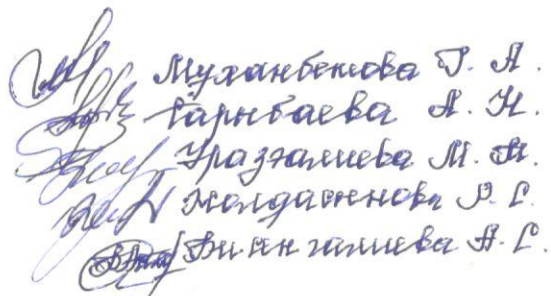 Муханбекова Г. А.
Гарыбаева А. Н.
Уразгалиева М. М.
Жолдашенова Р. С.
Бисенгалиева А. С.